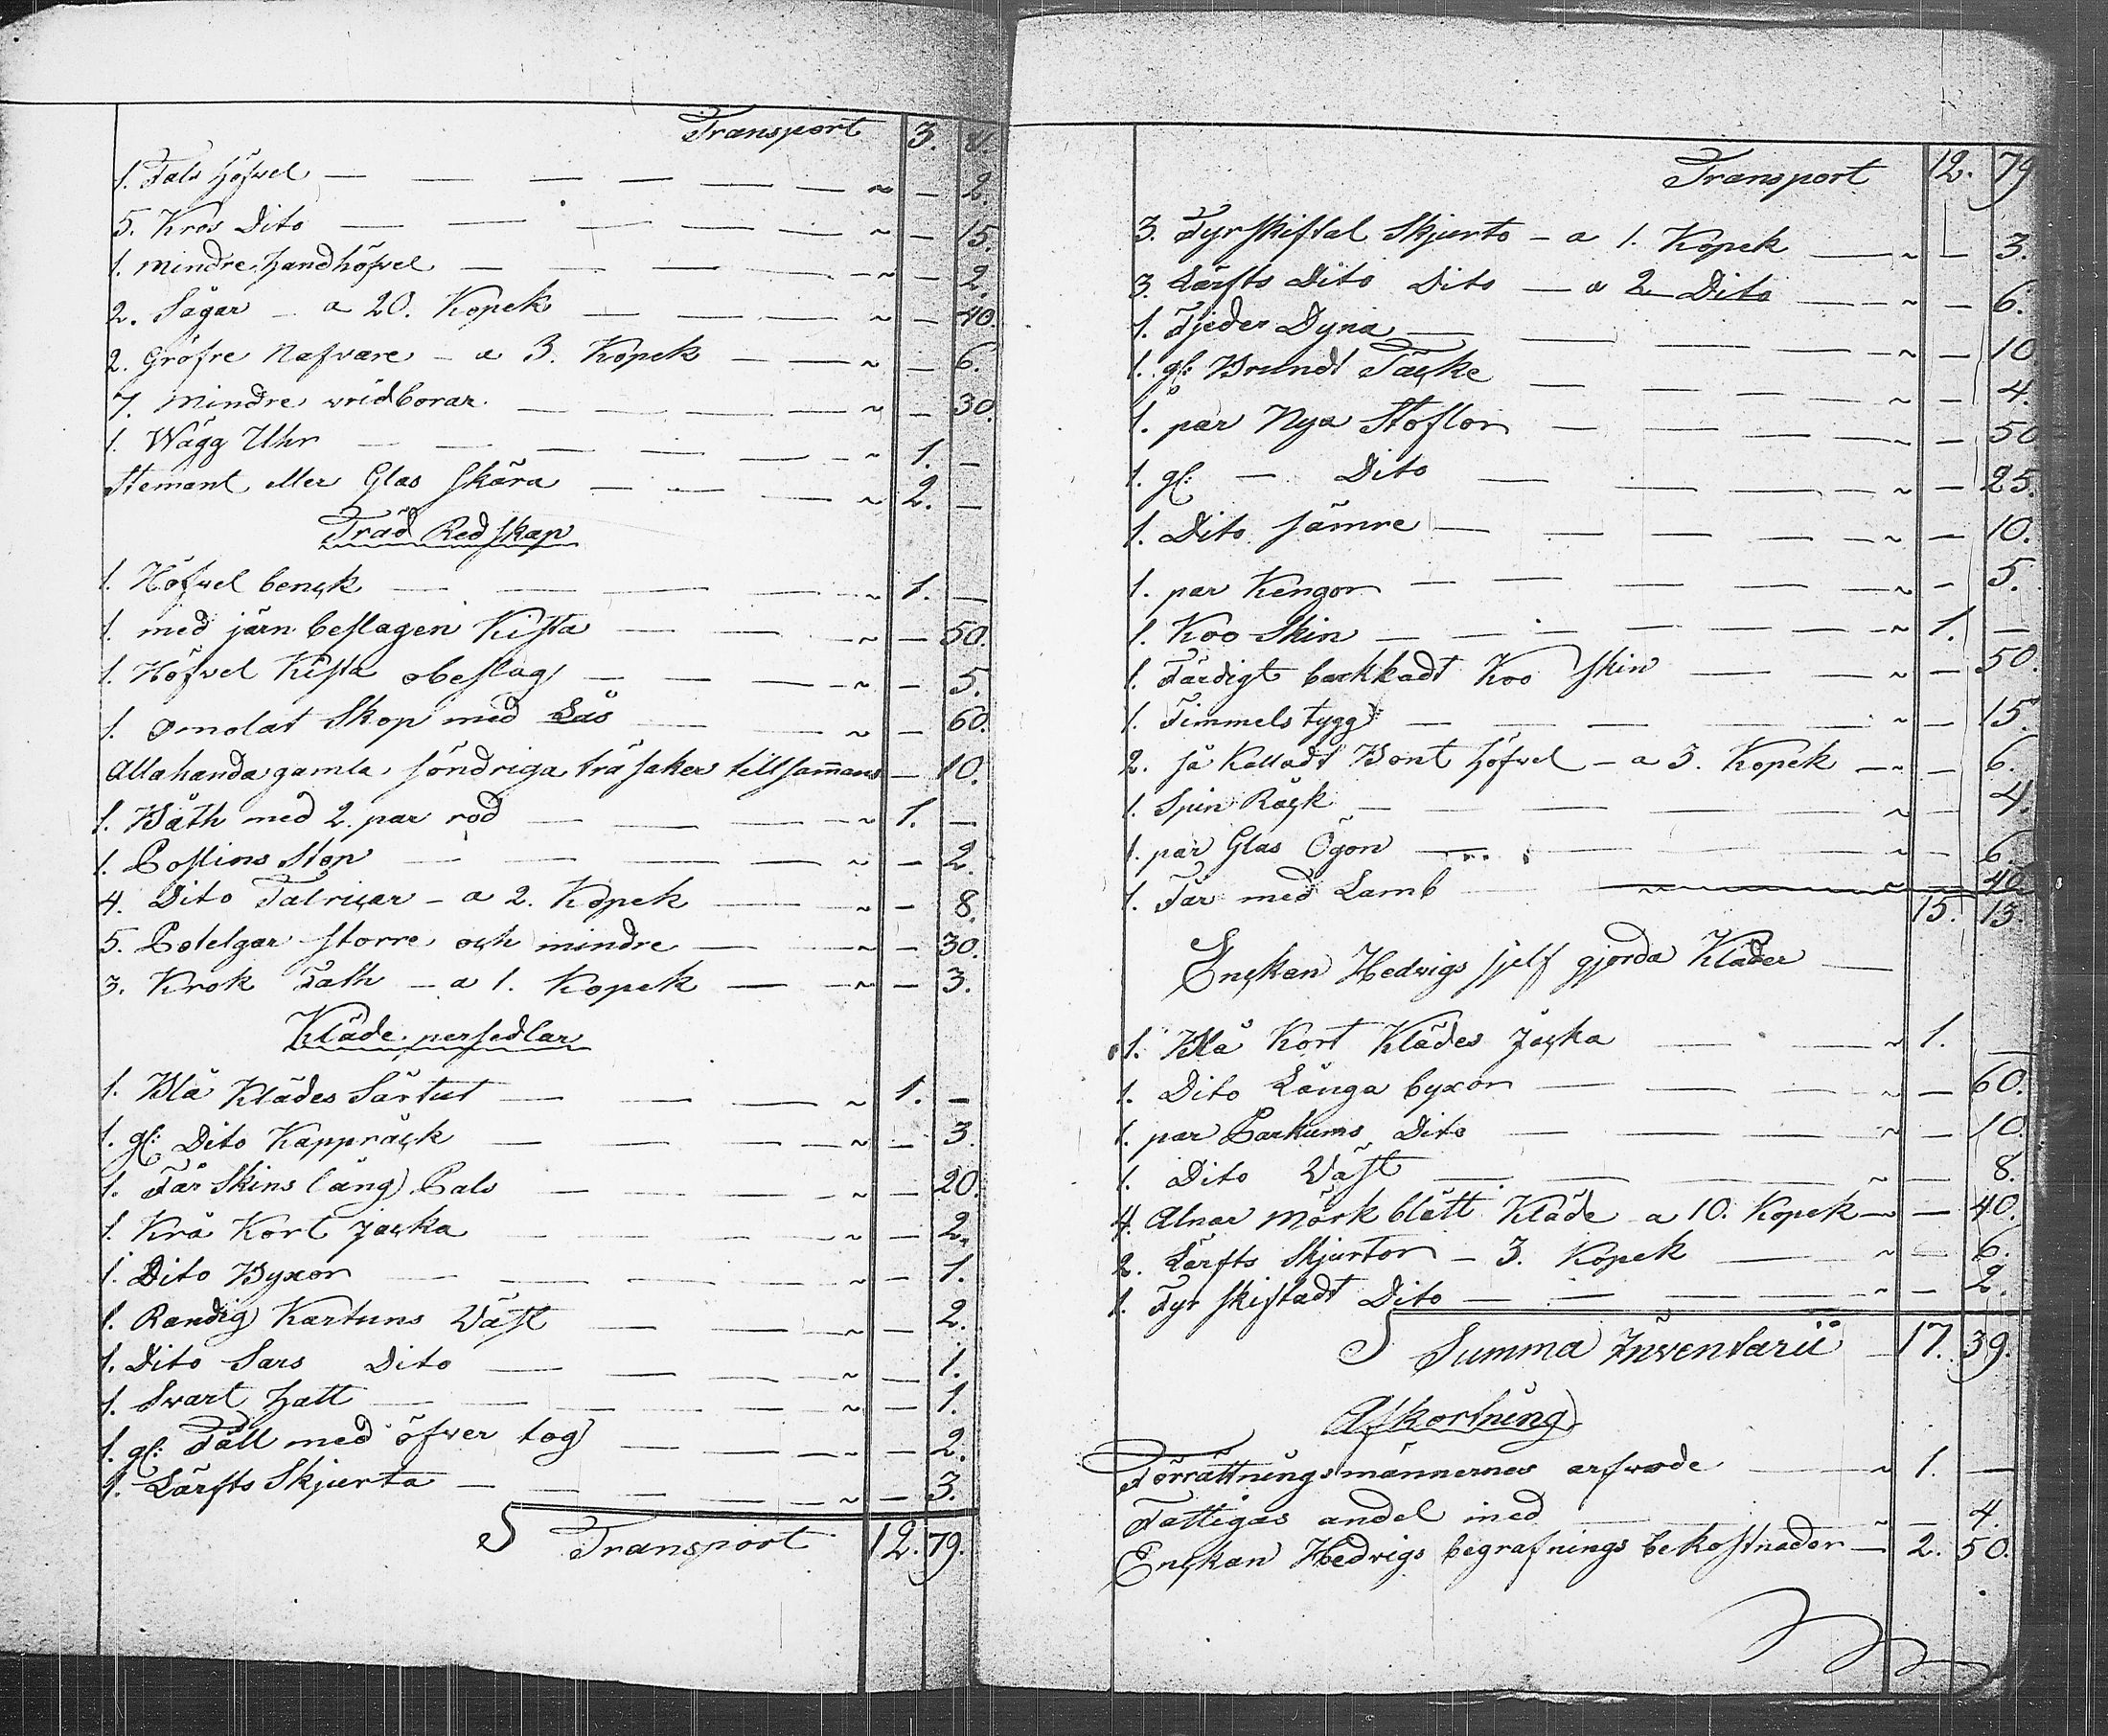 Transport 3. 4.
1. Fals höfvel — 2.
5. Kros Dito — 15.
1. mindre handhöfvel — 2.
2. Sågar – a 20. Kopek — 40.
2. Gröfre Nafvare – a 3. Kopek — 6.
7. Mindre vridborar — 30.
1. Wägg Uhr 1. —
Demant eller Glas Skära 2. —
Träd Redskap
1. Höfvel benck 1. —
1. med järn beslagen Kista — 50.
1. Höfvel Kista obeslag — 5.
1. omolat Skop med Lås — 60.
Allahanda gamla söndriga träsaker tillsammans — 10.
1. Båth med 2. par rod 1. —
1. Poslins Stop — 2.
4. Dito Talricar – a 2. Kopek — 8.
5. Botelgar storre och mindre — 30.
3. Krok Fath – a 1. Kopek — 3.
Kläde persedlar
1. Blå Klädes Sårtut 1. —
1. gl: Dito Kappråck — 3.
1. Får Skins lång Pals — 20.
1. Krå Kort Jacka — 2.
1. Dito Byxor — 1.
1. Randig Kartuns Väst — 2.
1. Dito Sars Dito — 1.
1. Svart hatt — 1.
1. gl: Fäll med öfver tog — 2.
1. Lärfts Skjurta — 3.
S Transport 12. 79.
Transport 12. 79
3. Fyrskiftal Skjurto – a 1. Kopek — 3.
3. Lärfts Dito Dito – a 2 Dito — 6.
1. Fjeder Dyna — 10
1. gl: Brundt Täcke — 4.
1. par Nya Stoflor — 50
1. gl: – Dito — 25.
1. Dito sämre — 10.
1. par Kengor — 5.
1. Koo Skin 1. —
1. Färdigt barkkadt Koo Skin — 50.
1. Timmels tygg — 15.
2. så Kalladt Bont höfvel – a 3. Kopek — 6.
1. Spin Råck — 4.
1. par Glas Ögon — 6.
1. Får med Lamb — 40.
15. 13.
Enckan Hedvigs sjelf gjorda Kläder —
1. Blå Kort Klädes Jacka 1. —
1. Dito Långa byxor — 60.
1. par Parkums Dito — 10.
1. Dito Väst — 8.
4. Alnar mörk blått Kläde a 10. Kopek — 40.
2. Lärfts Skjurtor – 3. Kopek — 6.
1. Fyr skiftadt Dito — 2.
S Summa Inventarii 17. 39.
Afkortning
Förrättningsmännernes arfvode 1. —
Fattigas andel med — 4.
Enckan Hedvigs begrafnings bekostnader — 2. 50.